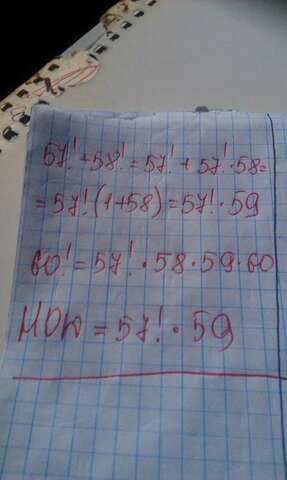 57! + 58! = 57! + 57! · 58 =
= 57! (1+58) = 57! · 59
60! = 57! · 58 · 59 · 60
НОД = 57! · 59